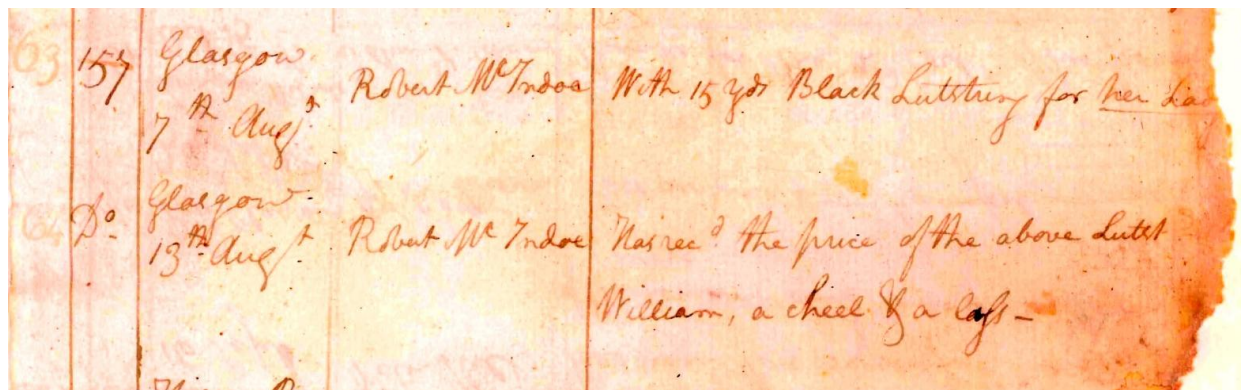 63 157 Glasgow 7th Augst Robert McIndoe With 15 yds Black Lutstring for her
64 Do Glasgow 13th Augt Robert McIndoe Has recd the price of the above Lutst
William, a cheel & a lass -